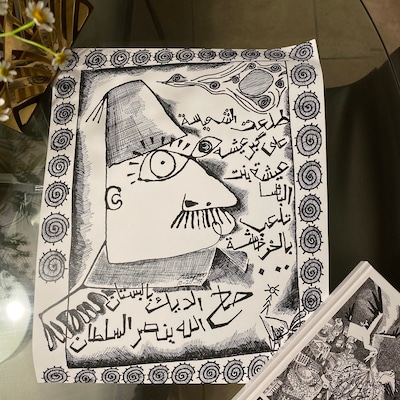 طلعت الشميسة
على گبر عيشة
عيشة بنت
الباشا
تلعب
بالخرخيشة
...
صاح الديك بالبستان
الله ينصر السلطان